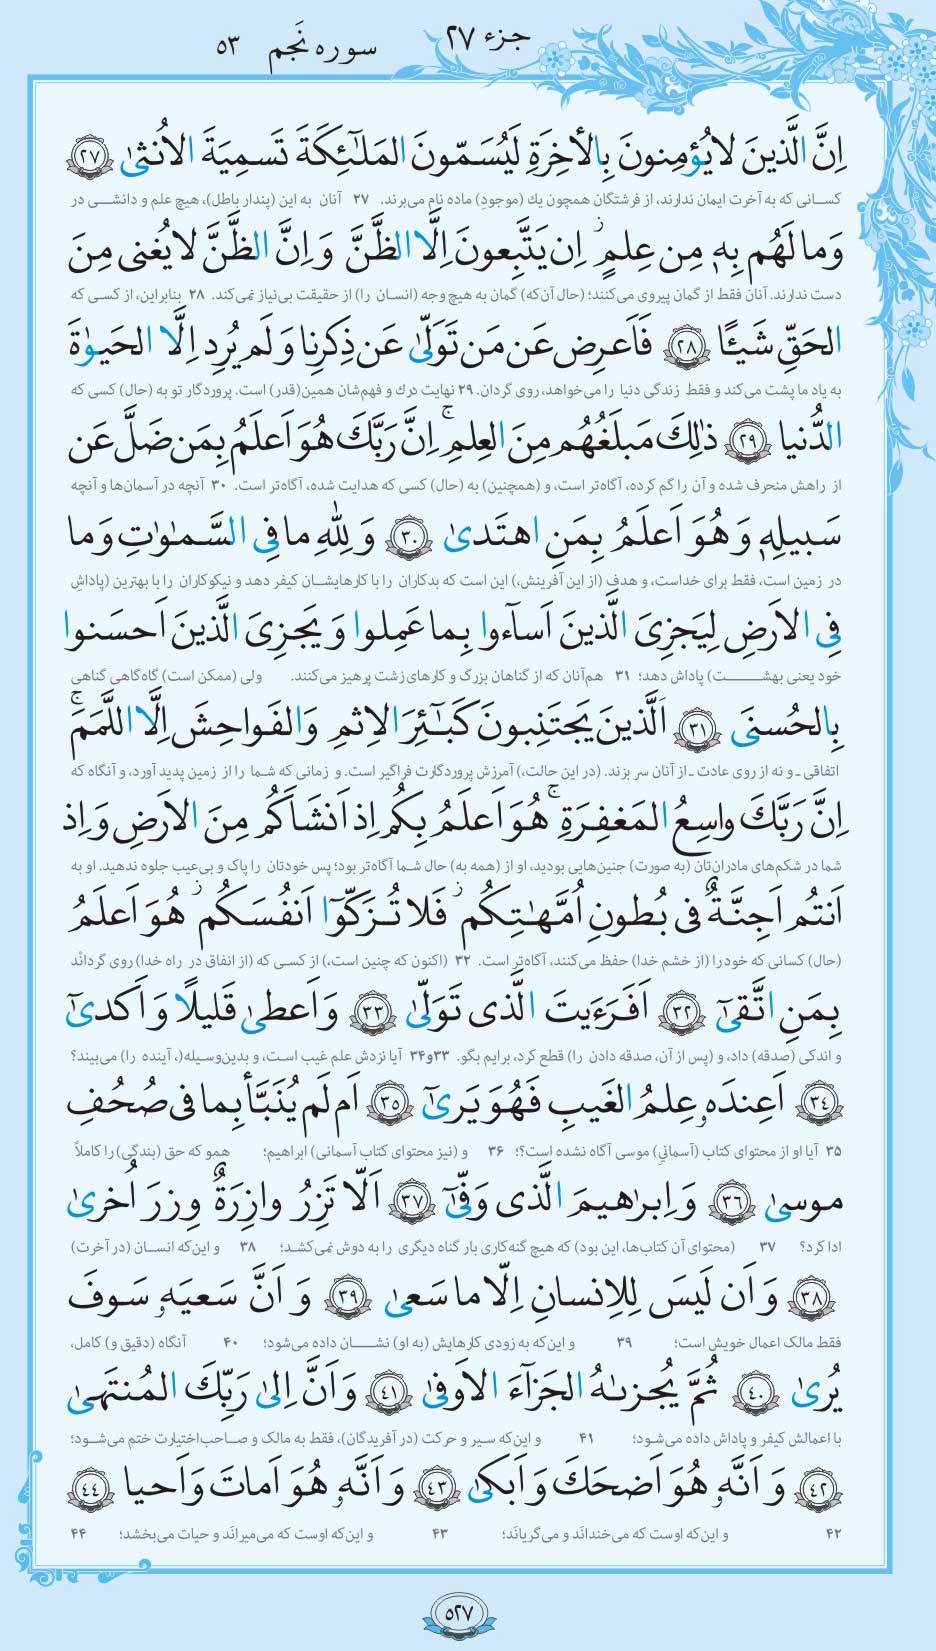 جزء ۲۷
سوره نَجم ۵۳
اِنَّ الَّذينَ لايُؤمِنونَ بِالأخِرَةِ لَيُسَمّونَ المَلٰٓئِكَةَ تَسمِيَةَ الاُنثىٰ ﴿٢٧﴾
کسانی که به آخرت ایمان ندارند، از فرشتگان همچون یك (موجودِ) ماده نام می‌برند. ۲۷ آنان به این (پندار باطل)، هیچ علم و دانشی در
وَما لَهُم بِه۪ مِن عِلمٍ ۖ اِن يَتَّبِعونَ اِلَّا الظَّنَّ وَاِنَّ الظَّنَّ لايُغنی مِنَ
دست ندارند. آنان فقط از گمان پیروی می‌کنند؛ (حال آن‌که) گمان به هیچ وجه (انسان را) از حقیقت بی‌نیاز نمی‌کند. ۲۸ بنابراین، از کسی که
الحَقِّ شَيـًٔا ﴿٢٨﴾ فَاَعرِض عَن مَن تَوَلّىٰ عَن ذِكرِنا وَلَم يُرِد اِلَّا الحَيوٰةَ
به یاد ما پشت می‌کند و فقط زندگی دنیا را می‌خواهد، روی گردان. ۲۹ نهایت درك و فهم‌شان همین(قدر) است. پروردگار تو به (حال) کسی که
الدُّنيا ﴿٢٩﴾ ذٰلِكَ مَبلَغُهُم مِنَ العِلمِ ۚ اِنَّ رَبَّكَ هُوَ اَعلَمُ بِمَن ضَلَّ عَن
از راهش منحرف شده و آن را گم کرده، آگاه‌تر است، و (همچنین) به (حال) کسی که هدایت شده، آگاه‌تر است. ۳۰ آنچه در آسمان‌ها و آنچه
سَبيلِه۪ وَهُوَ اَعلَمُ بِمَنِ اهتَدىٰ ﴿٣٠﴾ وَلِلّٰهِ ما فِی السَّمٰوٰتِ وَما
در زمین است، فقط برای خداست، و هدف (از این آفرینش،) این است که بدکاران را با کارهایشان کیفر دهد و نیکوکاران را با بهترین (پاداش
فِی الاَرضِ لِيَجزِیَ الَّذينَ اَسآءوا بِما عَمِلوا وَيَجزِیَ الَّذينَ اَحسَنوا
خود یعنی بهشت) پاداش دهد؛ ۳۱ هم‌آنان که از گناهان بزرگ و کارهای زشت پرهیز می‌کنند. ولی (ممکن است) گاه‌گاهی گناهی
بِالحُسنَی ﴿٣١﴾ اَلَّذينَ يَجتَنِبونَ كَبٰٓئِرَ الاِثمِ وَالفَواحِشَ اِلَّا اللَّمَمَ ۚ
اتفاقی ـ و نه از روی عادت ـ از آنان سر بزند. (در این حالت،) آمرزش پروردگارت فراگیر است. و زمانی که شما را از زمین پدید آورد، و آنگاه که
اِنَّ رَبَّكَ واسِعُ المَغفِرَةِ ۚ هُوَ اَعلَمُ بِكُم اِذ اَنشَاَكُم مِنَ الاَرضِ وَاِذ
شما در شکم‌های مادران‌تان (به صورت) جنین‌هایی بودید، او از (همه به) حال شما آگاه‌تر بود؛ پس خودتان را پاک و بی‌عیب جلوه ندهید. او به
اَنتُم اَجِنَّةٌ فی بُطونِ اُمَّهٰتِكُم ۖ فَلا تُزَكّوٓا اَنفُسَكُم ۖ هُوَ اَعلَمُ
(حال) کسانی که خود را (از خشم خدا) حفظ می‌کنند، آگاه‌تر است. ۳۲ (اکنون که چنین است،) از کسی که (از انفاق در راه خدا) روی گردانْد
بِمَنِ اتَّقىٰٓ ﴿٣٢﴾ اَفَرَءَيتَ الَّذی تَوَلّىٰ ﴿٣٣﴾ وَاَعطىٰ قَليلًا وَاَكدىٰٓ
و اندکی (صدقه) داد، و (پس از آن، صدقه دادن را) قطع کرد، برایم بگو. ۳۳و۳۴ آیا نزدش علم غیب است، و بدین‌وسیله(، آینده را) می‌بیند؟
﴿٣٤﴾ اَعِندَهٗ عِلمُ الغَيبِ فَهُوَ يَرىٰٓ ﴿٣٥﴾ اَم لَم يُنَبَّأ بِما فی صُحُفِ
۳۵ آیا او از محتوای کتاب (آسمانیِ) موسی آگاه نشده است؟؛ ۳۶ و (نیز محتوای کتاب آسمانی) ابراهیم؛ همو که حق (بندگی) را کاملاً
موسىٰ ﴿٣٦﴾ وَاِبرٰهيمَ الَّذی وَفّىٰٓ ﴿٣٧﴾ اَلّا تَزِرُ وازِرَةٌ وِزرَ اُخرىٰ
ادا کرد؟ ۳۷ (محتوای آن کتاب‌ها، این بود) که هیچ گنه‌کاری بار گناه دیگری را به دوش نمی‌کشد؛ ۳۸ و این‌که انسان (در آخرت)
﴿٣٨﴾ وَاَن لَيسَ لِلاِنسانِ اِلّا ما سَعىٰ ﴿٣٩﴾ وَاَنَّ سَعيَهٗ سَوفَ
فقط مالک اعمال خویش است؛ ۳۹ و این‌که به زودی کارهایش (به او) نشان داده می‌شود؛ ۴۰ آنگاه (دقیق و) کامل،
يُرىٰ ﴿٤٠﴾ ثُمَّ يُجزىٰهُ الجَزآءَ الاَوفىٰ ﴿٤١﴾ وَاَنَّ اِلىٰ رَبِّكَ المُنتَهىٰ
با اعمالش کیفر و پاداش داده می‌شود؛ ۴۱ و این‌که سیر و حرکت (در آفریدگان)، فقط به مالک و صاحب‌اختیارت ختم می‌شود؛
﴿٤٢﴾ وَاَنَّهٗ هُوَ اَضحَكَ وَاَبكىٰ ﴿٤٣﴾ وَاَنَّهٗ هُوَ اَماتَ وَاَحيا ﴿٤٤﴾
۴۲ و این‌که اوست که می‌خندانَد و می‌گریاند؛ ۴۳ و این‌که اوست که می‌میراند و حیات می‌بخشد؛ ۴۴
۵۲۷